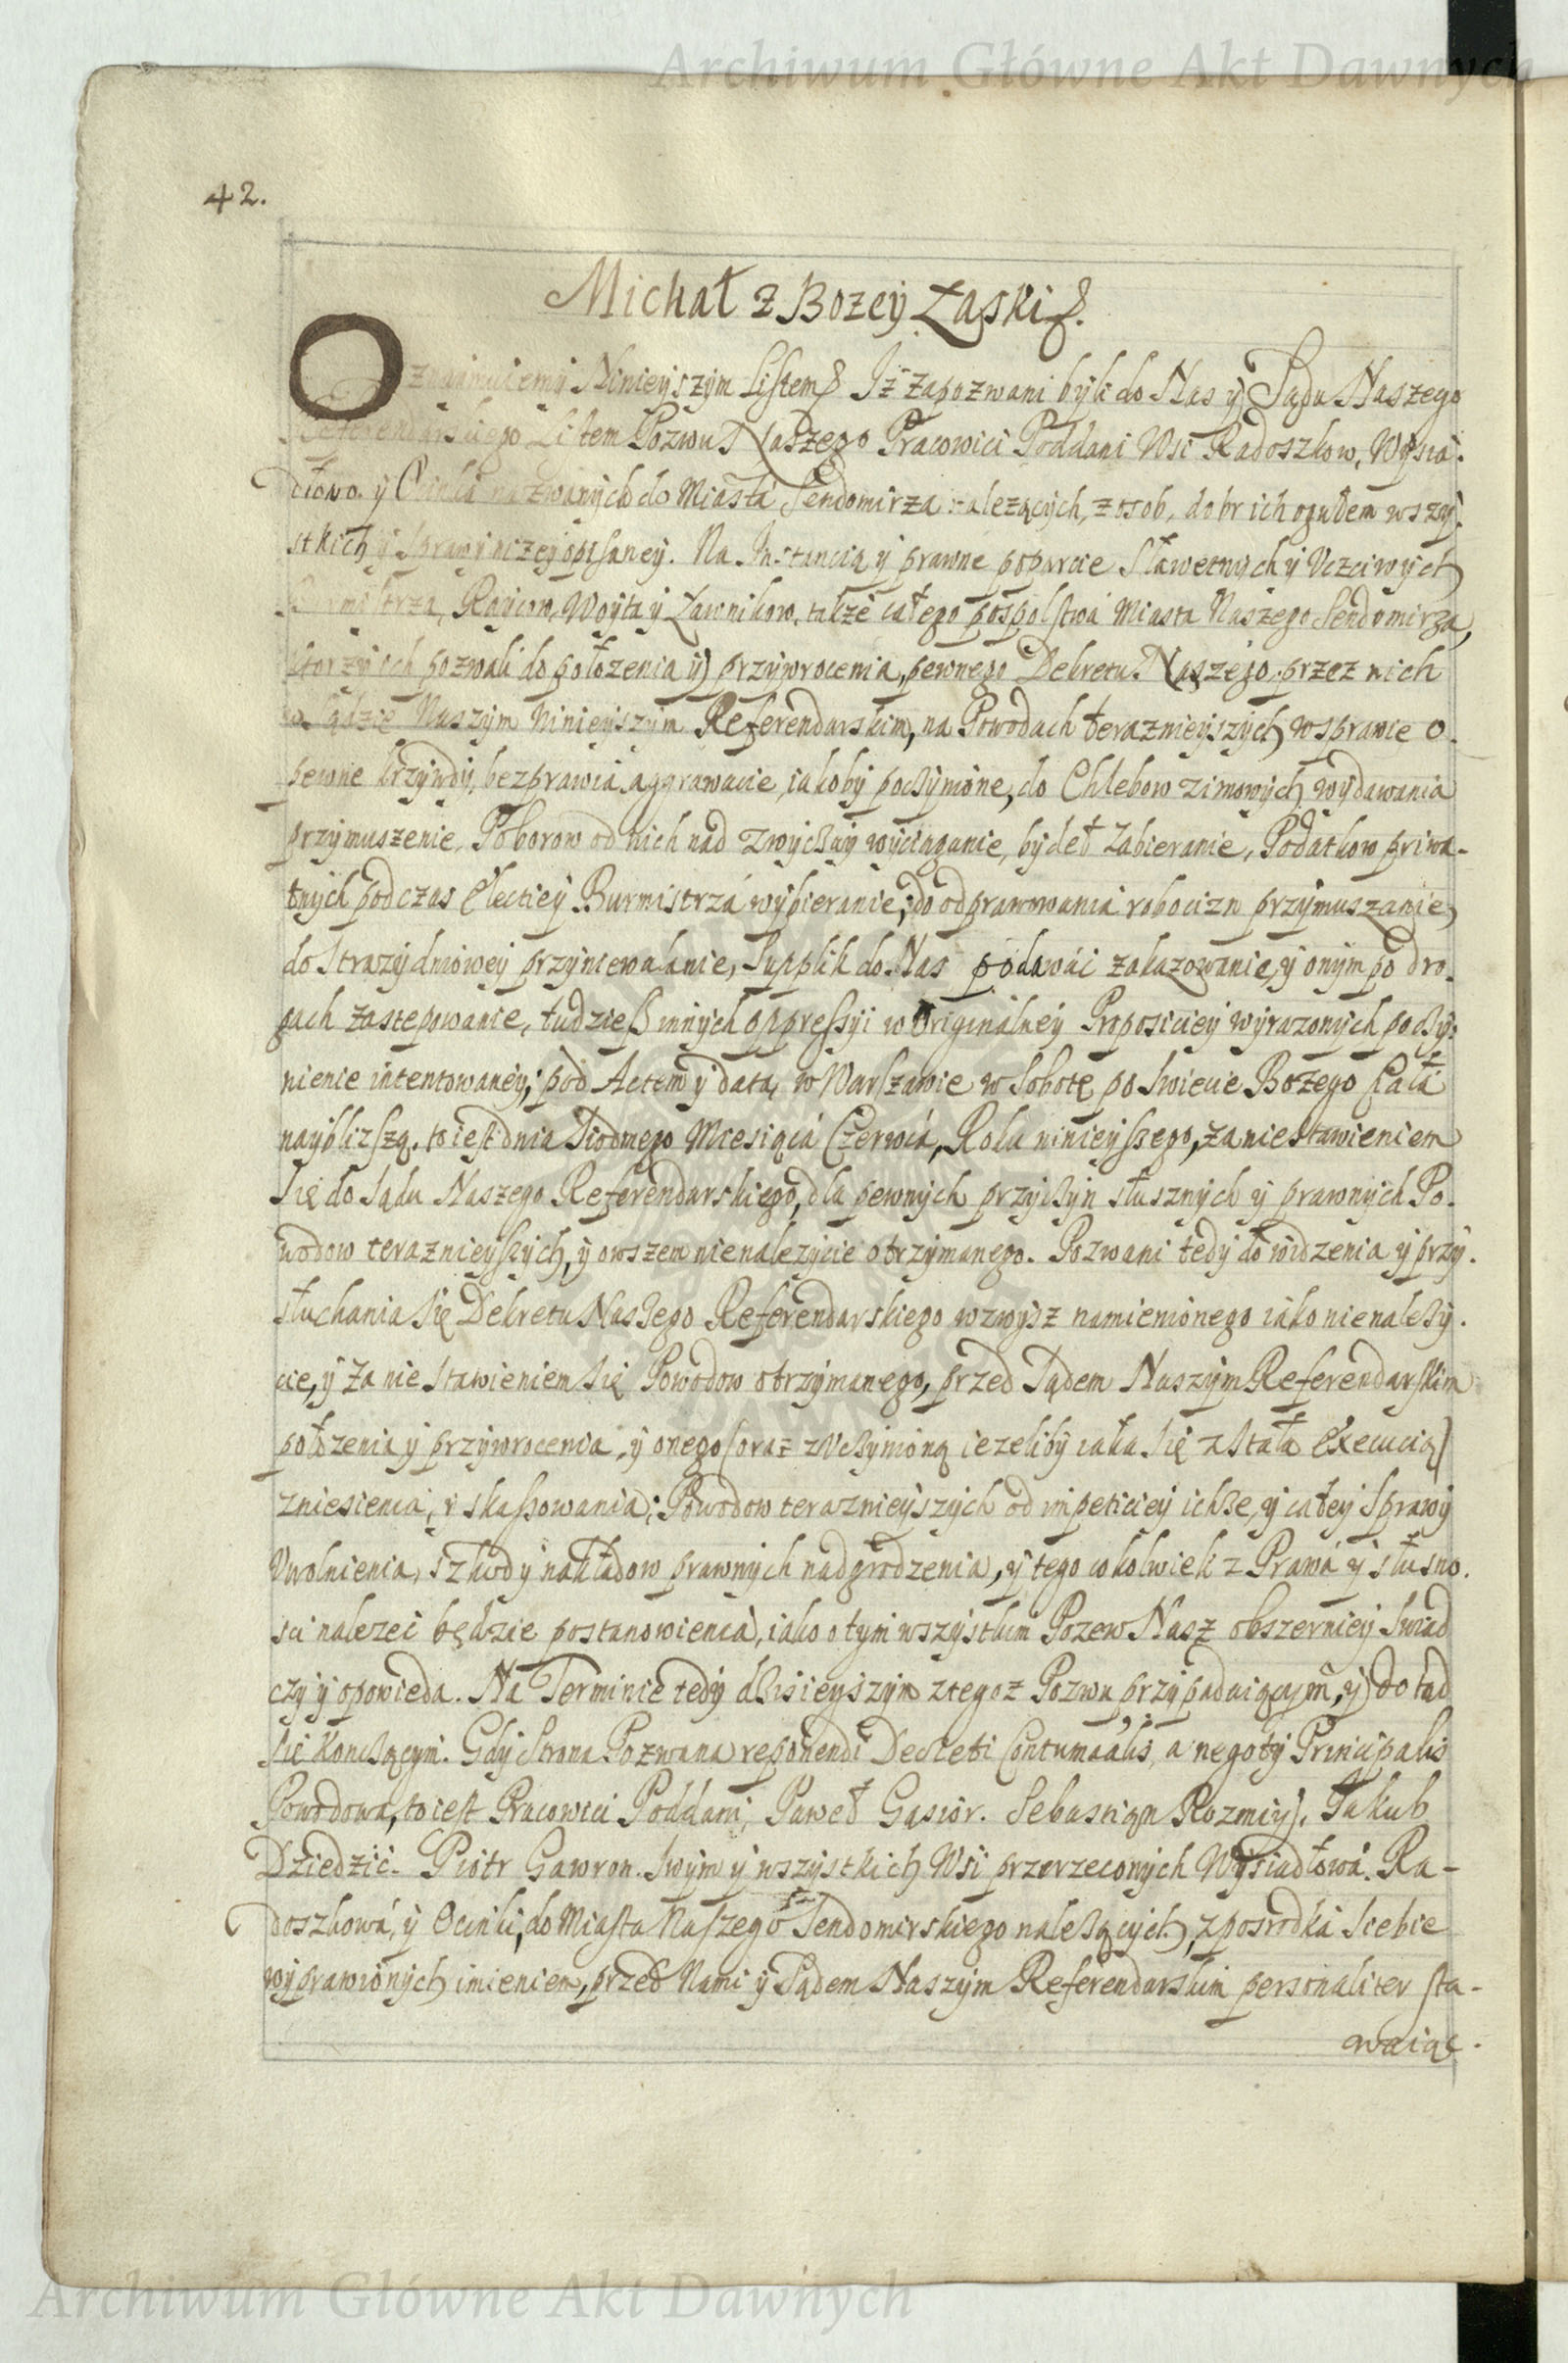 Archiwum Główne Akt Dawnych
42.
Michał z Bozey Łaski
Oznaimuiemy Ninieyszym Listem Iż zapozwani byli do Nas y Sądu Naszego
Referendarskiego Listem Pozwu Naszego Pracowici Poddani Wsi Radoszkow, Wysia:
dłowa y Ocinka nazwanych do Miasta Sendomirza nalezących, z osob, dobr ich ogułem wszy:
stkich y sprawy nizey opisaney. Na Instancią y prawne poparcie Sławetnych y Uczciwych
Burmistrza, Raycow, Woyta y Ławnikow, także całego pospolstwa Miasta Naszego Sendomirza,
ktorzy ich pozwali do położenia y przywrocenia, pewnego Dekretu Naszego, przez nich
w Sądzie Naszym Ninieyszym Referendarskim, na Powodach terazneyszych w sprawie o
pewne krzywdy, bezprawia aggrawacie, iakoby poczynione, do Chlebow zimowych wydawania
przymuszenie, Poborow od nich nad zwyczay wyciąganie, bydeł zabieranie, Podatkow priwa-
tnych podczas Electiey Burmistrza wybieranie, do odprawowania robocizn przymuszanie,
do Strazy dniowey przyniewalanie, Supplik do Nas podawać zakazowanie, y onym po dro.
gach zastępowanie, tudziesz innych oppressyi w Originalney Proposiciey wyrazonych poczy:
nienie intentowaney; pod Actem y datą, w Warszawie w Sobotę po Swięcie Bożego Ciała
naybliższą, to iest dnia Siodmego Miesiąca Czerwca, Roku ninieyszego, za niestawieniem
Się do Sądu Naszego Referendarskiego, dla pewnych przyczyn słusznych y prawnych Po.
wodow teraznieyszych, y owszem nienależycie otrzymanego. Pozwani tedy do widzenia y przy.
słuchania się Dekretu Naszego Referendarskiego wzwysz namienionego iako nienależy.
cie, y za nie stawieniem się Powodow otrzymanego, przed Sądem Naszym Referendarskim
położenia y przywrocenia, y onego (oraz z uczynioną iezeliby iaka się zstała Executią)
zniesienia, y skassowania; Powodow teraznieyszych od impeticiey ichże, y całey Sprawy
Uwolnienia, szkod y nakładow prawnych nadgrodzenia, y tego cokolwiek z Prawa y słuszno.
sci nalezeć będzie postanowienia, iako o tym wszystkim Pozew Nasz obszerniey Swiad
czy y opowieda. Na Terminie tedy dzisieyszym z tegoż Pozwu przypadaiącym, y do tąd
się konczącym. Gdy Strona Pozwana reponendi Decreti Contumatialis, a negotij Principalis
Powodowa, to iest Pracowici Poddani, Paweł Gąsior. Sebastian Rozmiy, Jakub
Dziedzic. Piotr Gawron. Swym y wszystkich Wsi przerzeczonych Wysiadłowa. Ra-
doszkowa, y Ocinki, do Miasta Naszego Sendomirskiego należących, z posrodka Siebie
wyprawionych imieniem, przed Nami y Sądem Naszym Referendarskim personaliter sta-
waiąc.
Archiwum Główne Akt Dawnych